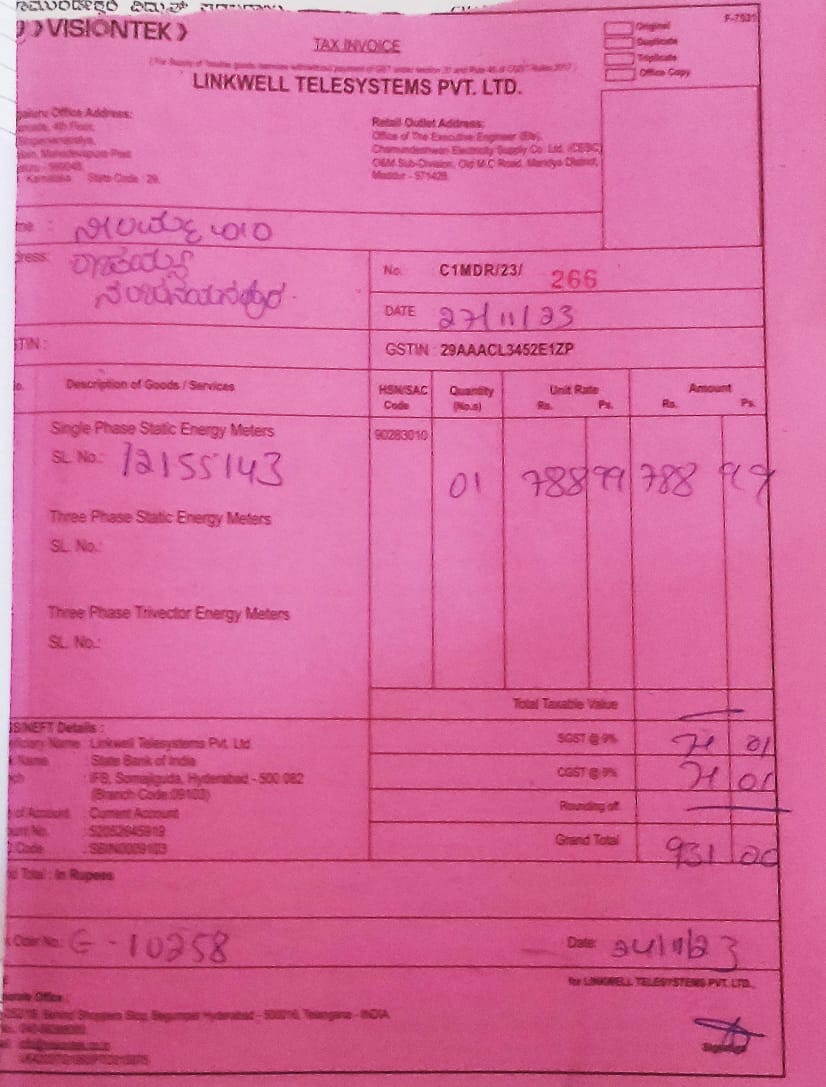 VISIONTEK
F-7531
TAX INVOICE
Original
Duplicate
Triplicate
Office Copy
LINKWELL TELESYSTEMS PVT. LTD.
Office Address:
4th Floor,
Mahadevapura Post
Karnataka State Code : 29.
Retail Outlet Address:
Office of The Executive Engineer (Ele),
Chamundeshwari Electricity Supply Co. Ltd. (CESC)
O&M Sub-Division, Old M.C Road, Mandya District,
Maddur - 571428.
No. C1MDR/23/ 266
DATE 27/11/23
GSTIN : 29AAACL3452E1ZP
Description of Goods / Services
HSN/SAC Code
Quantity (No.s)
Unit Rate Rs. Ps.
Amount Rs. Ps.
Single Phase Static Energy Meters 90283010
SL. No.: 12155143 01 788 99 788 99
Three Phase Static Energy Meters
SL. No.:
Three Phase Trivector Energy Meters
SL. No.:
Total Taxable Value
NEFT Details :
Name : Linkwell Telesystems Pvt. Ltd. SGST @ 9% 71 01
Name : State Bank of India
: IFB, Somajiguda, Hyderabad - 500 082 CGST @ 9% 71 01
(Branch Code:09103)
of Account : Current Account Rounding off
: 52062845919
Code : SBIN0009103 Grand Total 931 00
Total : In Rupees
Order No.: G - 10258 Date: 24/11/23
for LINKWELL TELESYSTEMS PVT. LTD.,
Office :
Behind Shoppers Stop, Begumpet Hyderabad - 500016, Telangana - INDIA